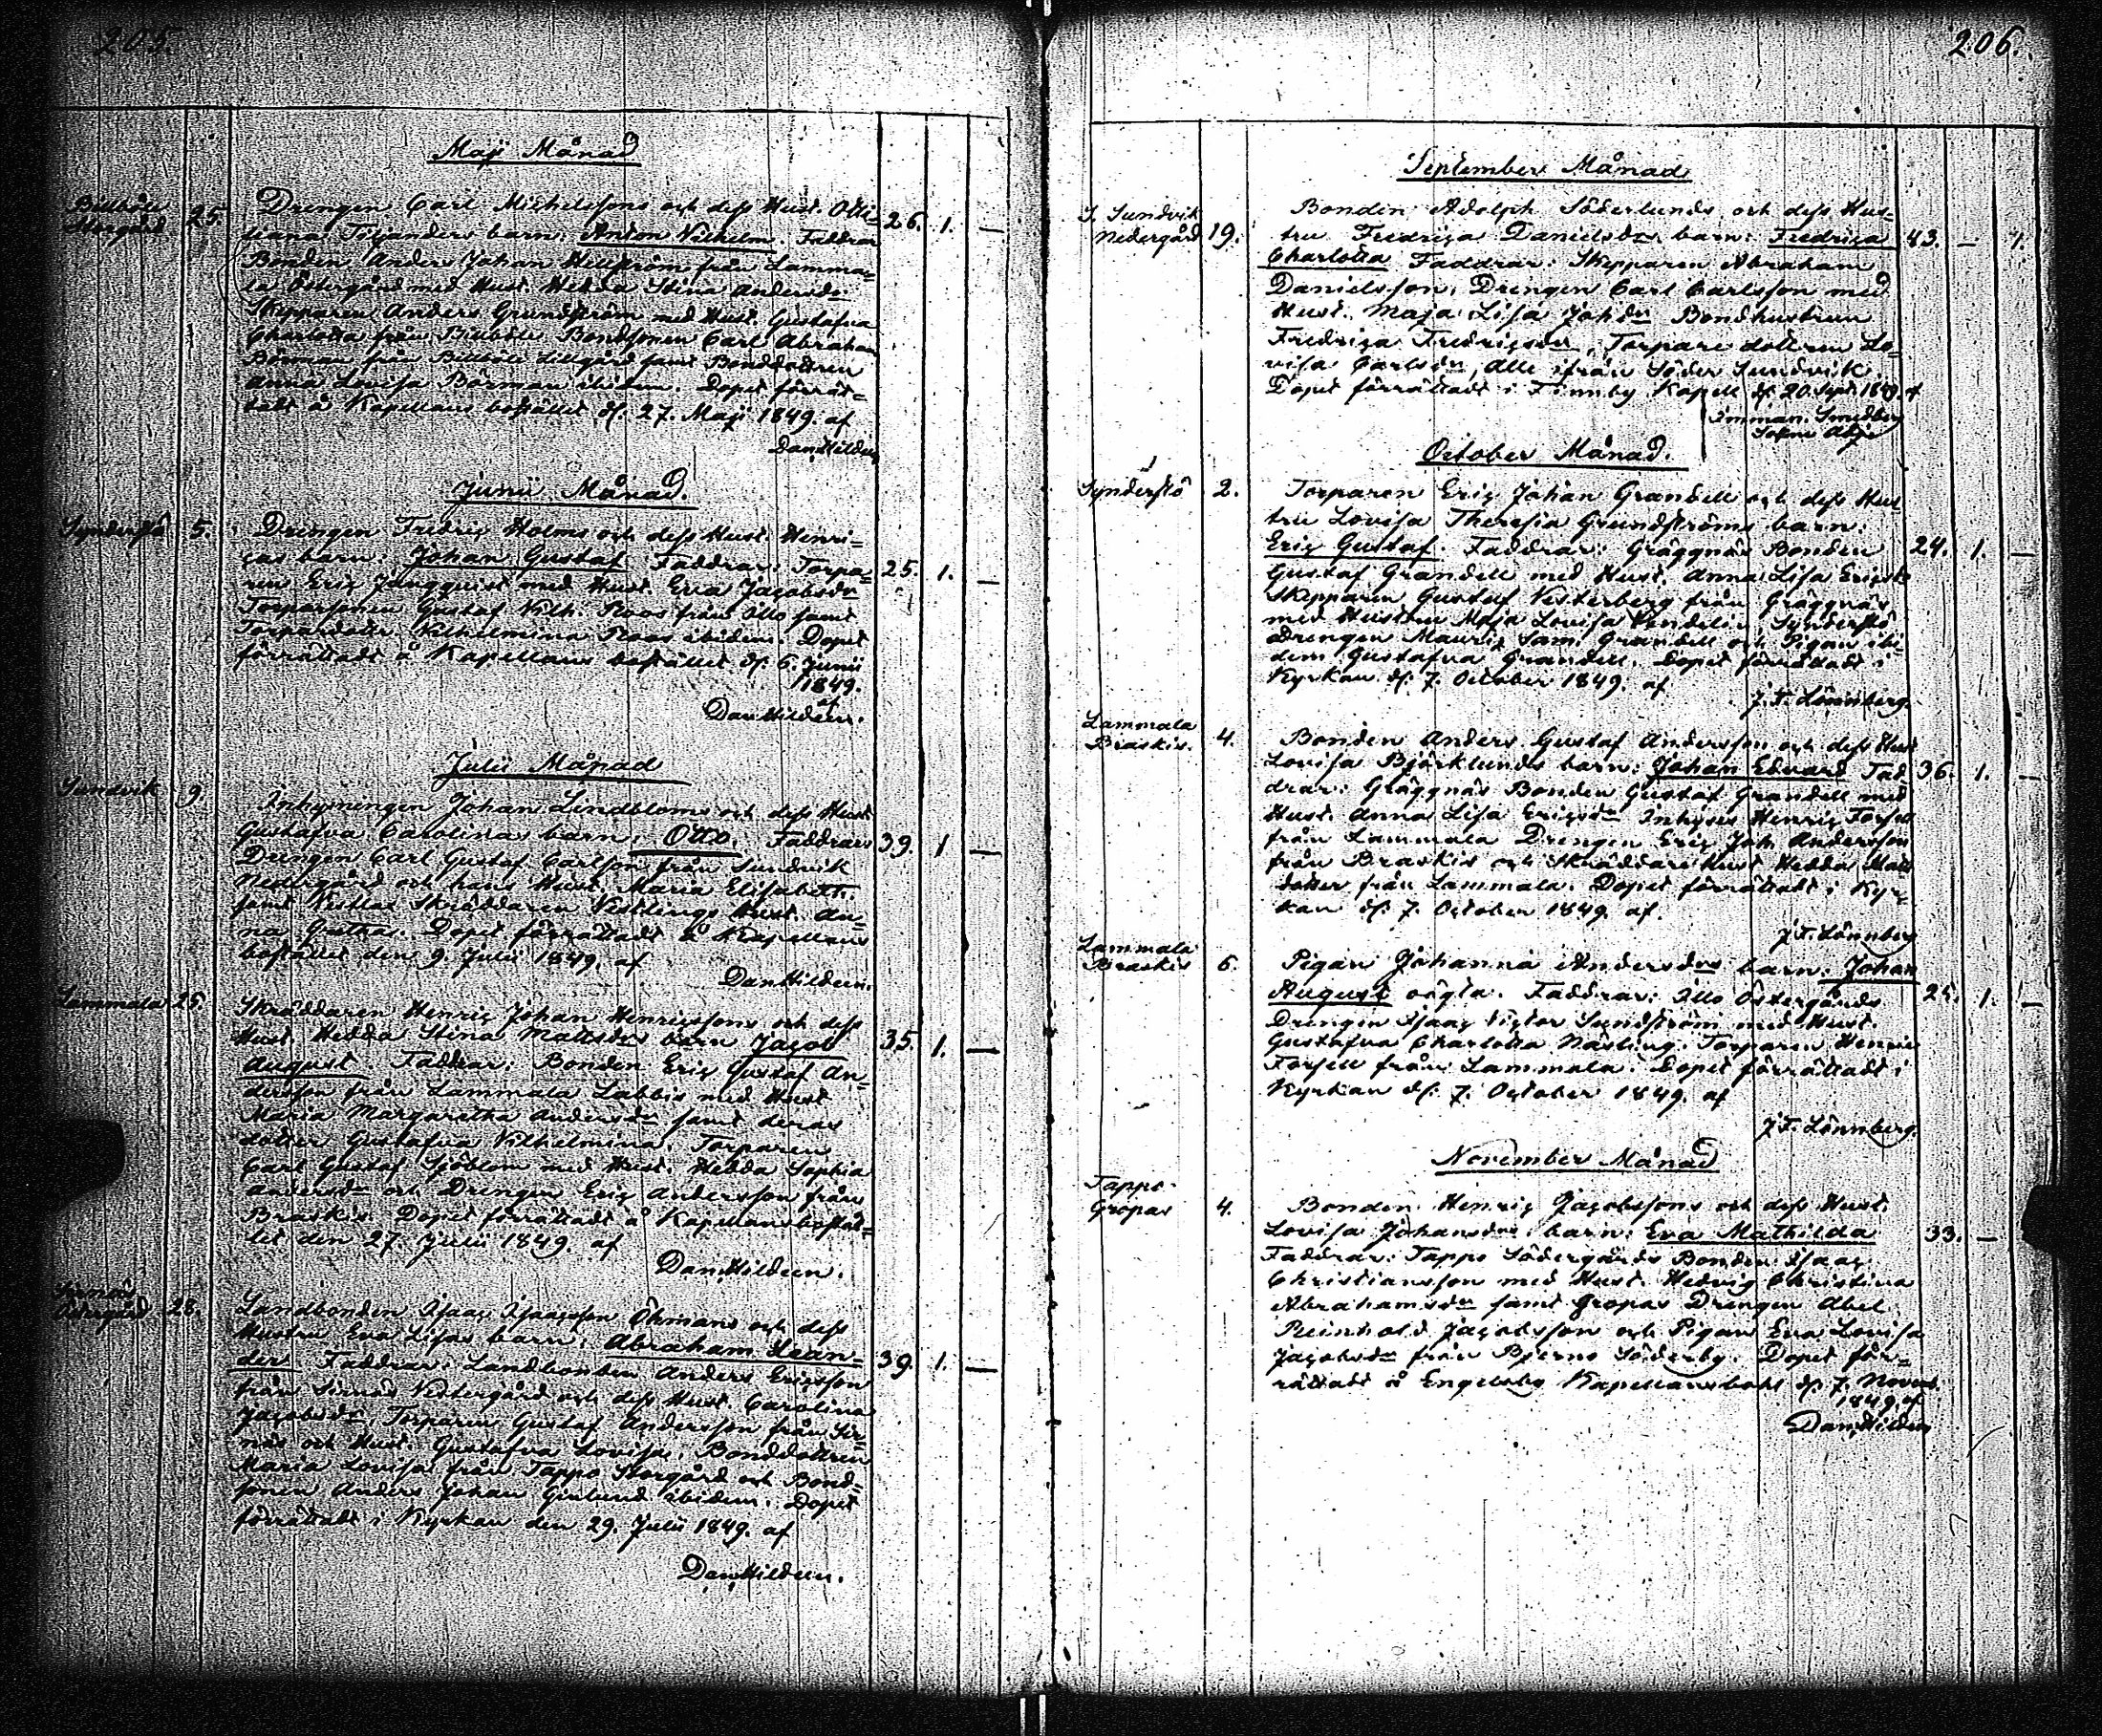 205.
Maji Månad
Billböle
Storgård 25.
Drengen Carl Michelssons och dess Hust. Otti-
liana Tiljanders barn: Anton Vilhelm. Faddrar 26. 1. —
Bonden Anders Johan Hellström från Lamma-
la Östergård med Hust. Hedda Stina Andersdr
Skepparen Anders Grundström med Hust. Gustafva
Charlotta från Billböle Bondsonen Carl Abraham
Börman från Billböle Lillgård samt Bonddottren
Anna Lovisa Börman ibidem. Dopet förrät-
tadt å Kapellans bostället d. 27. Maji 1849. af
Dan. Hildeen
Junii Månad.
Synderstö 5.
Drengen Fredric Holms och dess Hust. Henri-
cas barn: Johan Gustaf Faddrar: Torpa- 25. 1. —
ren Eric Ljungquist med Hust. Eva Jacobsdr
Torparsonen Gustaf Vilh. Roos från Illo samt
Torpardottr. Vilhelmina Roos ibidem. Dopet
förrättadt å Kapellans bostället d. 6. Junii
1849.
af
Dan Hildeen.
Julii Månad
Sundvik 9.
Inhysningen Johan Lindbloms och dess Hust.
Gustafva Carolinas barn: Otto. Faddrar 39. 1 —
Drengen Carl Gustaf Carlsson från Sundvik
Nedergård och hans Hust. Maria Elisabeth.
samt Vestlax Skräddaren Vestlings Hust. An-
na Gretha. Dopet förrättadt å Kapellans
bostället den 9. Julii 1849. af
Dan Hildeen.
Lammala 25.
Skräddaren Henric Johan Henricssons och dess
Hust. Hedda Stina Mattsdrs barn Jacob 35. 1. —
August. Faddrar: Bonden Eric Gustaf An-
dersson från Lammala Labbis med Hust.
Maria Margaretha Andersdr samt deras
dotter Gustafva Vilhelmina Torparen
Carl Gustaf Sjöblom med Hust. Hedda Sophia
Andersdr och Drengen Eric Andersson från
Braskis. Dopet förrättadt å Kapellansbostäl-
let den 27. Julii 1849. af
Dan. Hildeen.
Sirnäs
Östergård 28.
Landbonden Isaac Isaacsson Öhmans och dess
Hustru Eva Lisas barn: Abraham Lean-
der Faddrar: Landbonden Anders Ericsson 39. 1. —
från Sirnäs Vestergård och dess Hust. Carolina
Jacobsdr, Torparen Gustaf Andersson från Sir-
näs och Hust. Gustafva Lovisa, Bonddottren
Maria Lovisa från Tappo Storgård och Bond-
sonen Anders Johan Ginlund ibidem. Dopet
förrättadt i Kyrkan den 29. Julii 1849. af
Dan Hildeen.
206.
September Månad
S. Sundvik
Nedergård 19.
Bonden Adolph Söderlunds och dess Hus-
tru Fredrica Danielsdrs barn: Fredrica 43. — 1.
Charlotta Faddrar: Skepparen Abraham
Danielsson, Drengen Carl Carlsson med
Hust. Maja Lisa Johdr Bondhustrun
Fredrica Fredricsdr, Torpare dottren Lo-
visa Carlsdr, Alle ifrån Söder Sundvik.
Dopet förrättadt i Finnby Kapell d. 20. Sept. 1849. af
Imman. Smedberg
Sokne Adj.
October Månad.
Synderstö 2.
Torparen Eric Johan Grandell och dess Hus
tru Lovisa Theresia Grundströms barn:
Eric Gustaf. Faddrar: Gräggnäs Bonden 24. 1. —
Gustaf Grandell med Hust. Anna Lisa Ericsdr
Skepparen Gustaf Vesterberg från Gräggnäs
med Hustru Maja Lovisa Vendelin Synderstö
Drengen Mauritz Sam. Grandell och Pigan ibi-
dem Gustafva Grandell. Dopet förrättadt i
Kyrkan d. 7. October 1849. af
J. F. Lönnberg.
Lammala
Braskis. 4.
Bonden Anders Gustaf Andersson och dess Hust
Lovisa Björklunds barn: Johan Edvard Fad 36. 1. —
drar: Gräggnäs Bonden Gustaf Grandell med
Hust. Anna Lisa Ericsdr Inhyses Henric Forsell
från Lammala Drengen Eric Joh. Andersson
från Braskis och Skräddare Hust. Hedda Matts
dotter från Lammala. Dopet förrättadt i Kyr-
kan d. 7. October 1849. af.
J. F. Lönnberg
Lammala
Braskis 6.
Pigan Johanna Andersdrs barn: Johan
August oägta. Faddrar: Illo Östergårds 25. 1. —
Drengen Isaac Victor Sundström med Hust.
Gustafva Charlotta Näsling. Torparen Henric
Forsell från Lammala. Dopet förrättadt i
Kyrkan d. 7. October 1849. af
J. F. Lönnberg.
November Månad
Tappo
Gropas 4.
Bonden Henric Jacobssons och dess Hust.
Lovisa Johansdrs barn: Eva Mathilda 33. —
Faddrar: Tappo Södergårds Bonden Isaac
Christiansson med Hust. Hedvig Christina
Abrahamsdr samt Gropas Drengen Abel
Reinhold Jacobsson och Pigan Eva Lovisa
Jacobsdr från Bjerno Söderby. Dopet för-
rättadt å Engelsby Kapellansbohl d. 7. Novemb.
1849. af
Dan. Hildeen